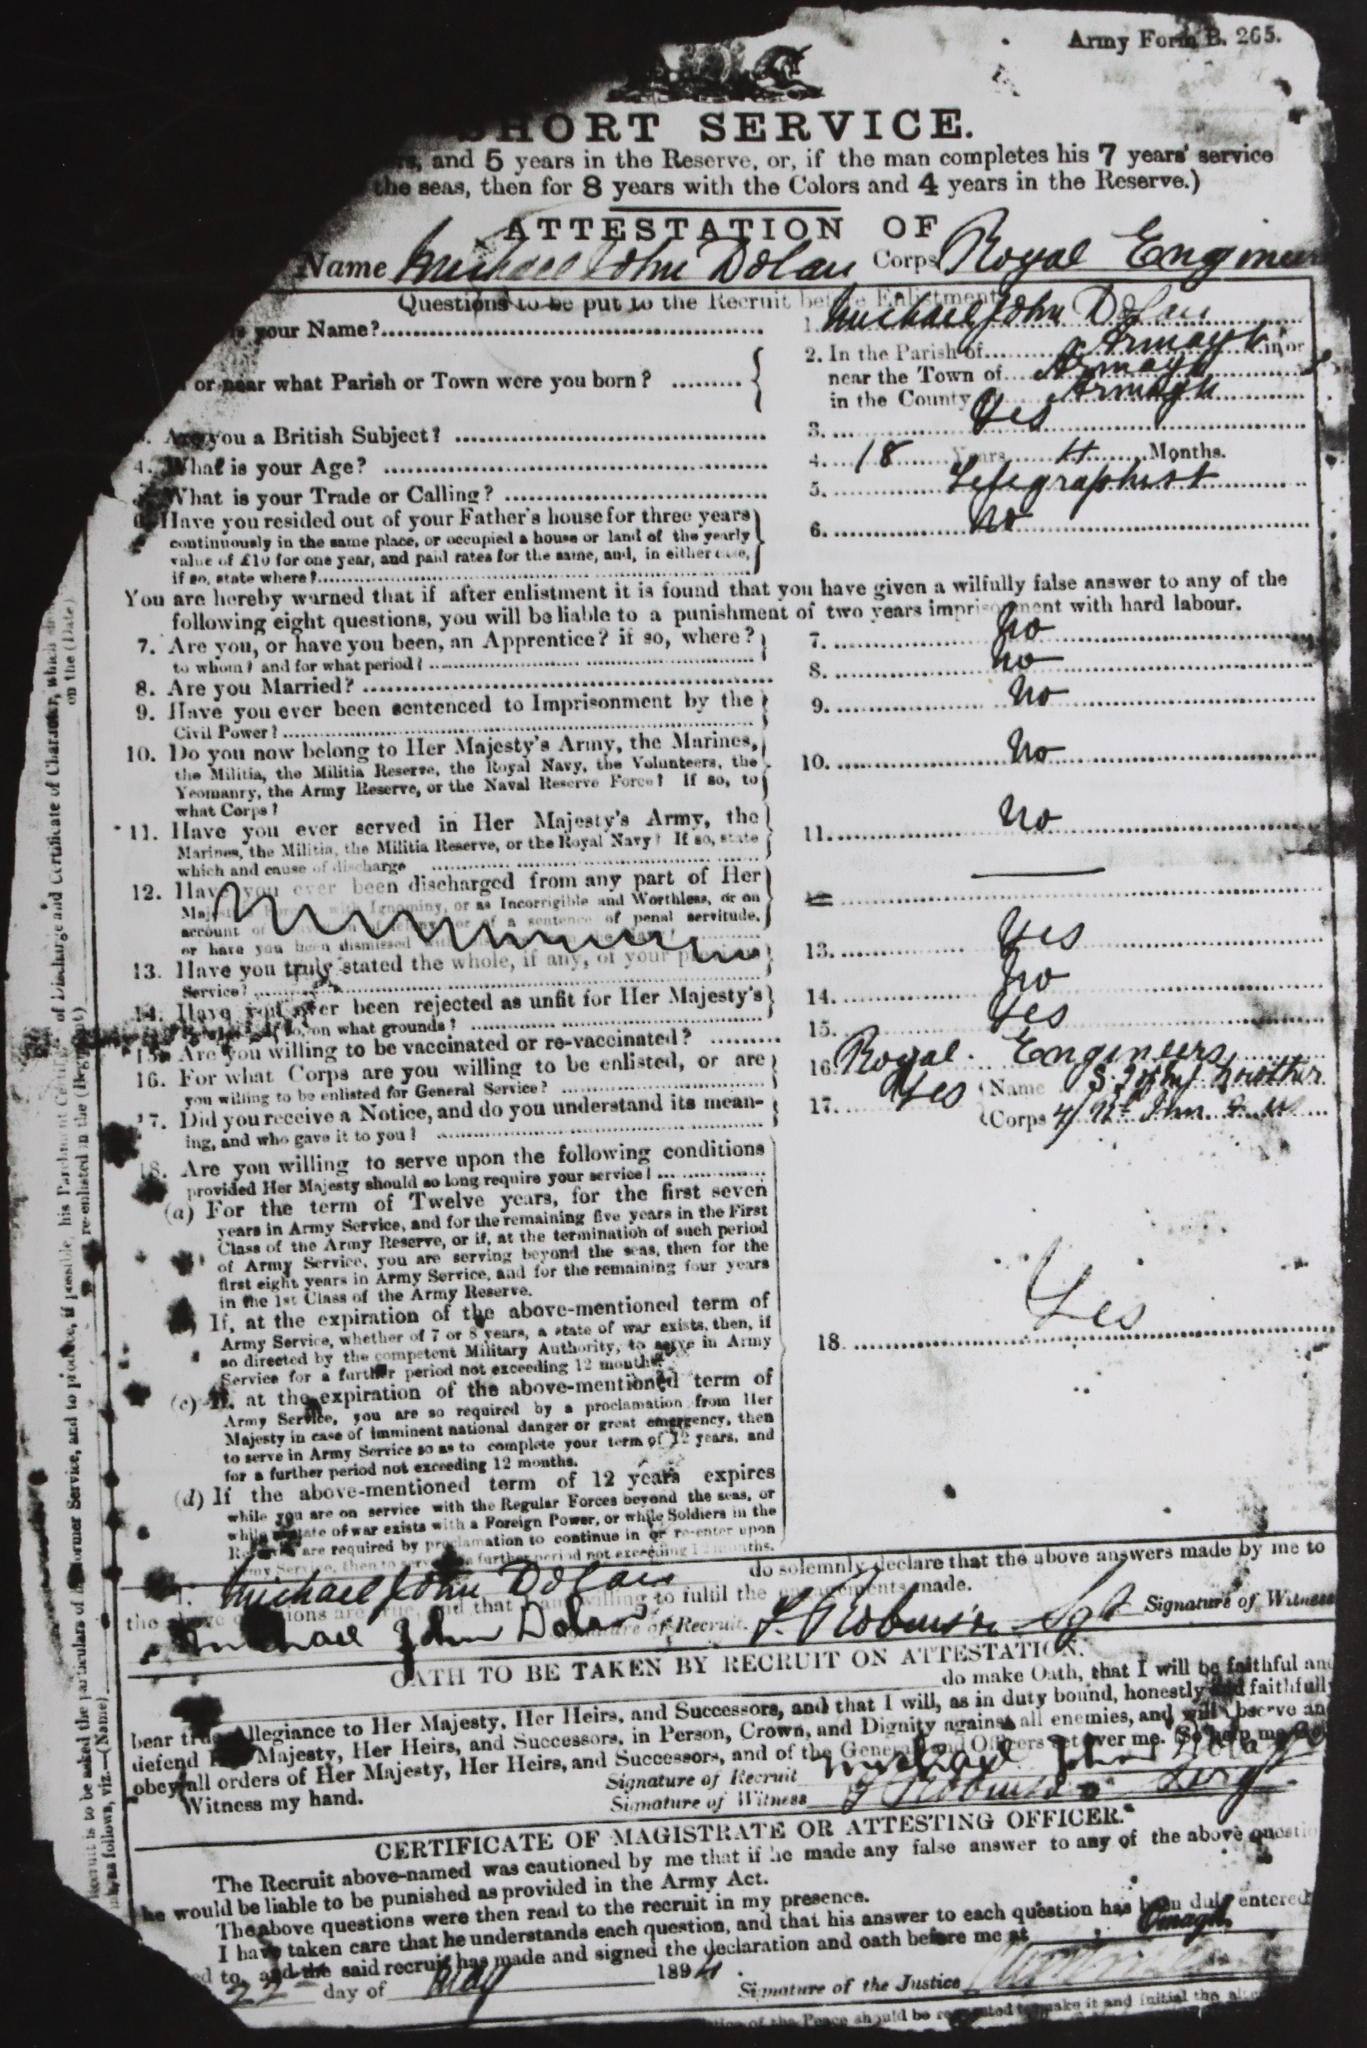 Army Form B. 265.
SHORT SERVICE.
and 5 years in the Reserve, or, if the man completes his 7 years' service
the seas, then for 8 years with the Colors and 4 years in the Reserve.)
ATTESTATION OF
Name Michael John Dolan Corps Royal Engineers
Questions to be put to the Recruit before Enlistment
your Name? 1. Michael John Dolan
or near what Parish or Town were you born? 2. In the Parish of Armagh in or
near the Town of Armagh
in the County Armagh
Are you a British Subject? 3. Yes
4. What is your Age? 4. 18 Years 4 Months.
What is your Trade or Calling? 5. Telegraphist
6. Have you resided out of your Father's house for three years 6. No
continuously in the same place, or occupied a house or land of the yearly
value of £10 for one year, and paid rates for the same, and, in either case,
if so, state where?
You are hereby warned that if after enlistment it is found that you have given a wilfully false answer to any of the
following eight questions, you will be liable to a punishment of two years imprisonment with hard labour.
7. Are you, or have you been, an Apprentice? if so, where? 7. No
to whom? and for what period?
8. Are you Married? 8. No
9. Have you ever been sentenced to Imprisonment by the 9. No
Civil Power?
10. Do you now belong to Her Majesty's Army, the Marines, 10. No
the Militia, the Militia Reserve, the Royal Navy, the Volunteers, the
Yeomanry, the Army Reserve, or the Naval Reserve Force? If so, to
what Corps?
11. Have you ever served in Her Majesty's Army, the 11. No
Marines, the Militia, the Militia Reserve, or the Royal Navy? If so, state
which and cause of discharge
12. Have you ever been discharged from any part of Her 12
with Ignominy, or as Incorrigible and Worthless, or on
account of or of a sentence of penal servitude,
or have you been dismissed
13. Have you truly stated the whole, if any, of your 13. Yes
Service?
14. Have you ever been rejected as unfit for Her Majesty's 14. No
on what grounds?
15. Are you willing to be vaccinated or re-vaccinated? 15. Yes
16. For what Corps are you willing to be enlisted, or are 16. Royal Engineers
you willing to be enlisted for General Service?
17. Did you receive a Notice, and do you understand its mean- 17. Yes Name
ing, and who gave it to you? Corps
18. Are you willing to serve upon the following conditions
provided Her Majesty should so long require your service?
(a) For the term of Twelve years, for the first seven
years in Army Service, and for the remaining five years in the First
Class of the Army Reserve, or if, at the termination of such period
of Army Service, you are serving beyond the seas, then for the
first eight years in Army Service, and for the remaining four years
in the 1st Class of the Army Reserve.
If, at the expiration of the above-mentioned term of
Army Service, whether of 7 or 8 years, a state of war exists, then, if
so directed by the competent Military Authority, to serve in Army
Service for a further period not exceeding 12 months.
18. Yes
(c) If, at the expiration of the above-mentioned term of
Army Service, you are so required by a proclamation from Her
Majesty in case of imminent national danger or great emergency, then
to serve in Army Service so as to complete your term of 12 years, and
for a further period not exceeding 12 months.
(d) If the above-mentioned term of 12 years expires
while you are on service with the Regular Forces beyond the seas, or
while a state of war exists with a Foreign Power, or while Soldiers in the
are required by proclamation to continue in or re-enter upon
Army Service, then to serve a further period not exceeding 12 months.
I, Michael John Dolan do solemnly declare that the above answers made by me to
the and that I am willing to fulfil the engagements made.
Michael John Dolan Signature of Recruit. F. Robinson Sgt Signature of Witness
OATH TO BE TAKEN BY RECRUIT ON ATTESTATION.
do make Oath, that I will be faithful and
bear true Allegiance to Her Majesty, Her Heirs, and Successors, and that I will, as in duty bound, honestly and faithfully
defend Her Majesty, Her Heirs, and Successors, in Person, Crown, and Dignity against all enemies, and will observe and
obey all orders of Her Majesty, Her Heirs, and Successors, and of the Generals and Officers set over me. (So help me God
Witness my hand. Signature of Recruit Michael John Dolan
Signature of Witness F Robinson Sergt
CERTIFICATE OF MAGISTRATE OR ATTESTING OFFICER.
The Recruit above-named was cautioned by me that if he made any false answer to any of the above questions
he would be liable to be punished as provided in the Army Act.
The above questions were then read to the recruit in my presence.
I have taken care that he understands each question, and that his answer to each question has been duly entered
to, and the said recruit has made and signed the declaration and oath before me at Omagh
22 day of May 1894. Signature of the Justice
of the Peace should be requested to make it and initial the
Recruit is to be asked the particulars of former Service, and to produce, if possible, his Parchment of Discharge and Certificate of Character, which
as follows, viz.—(Name) re-enlisted in the (Regiment) on the (Date)